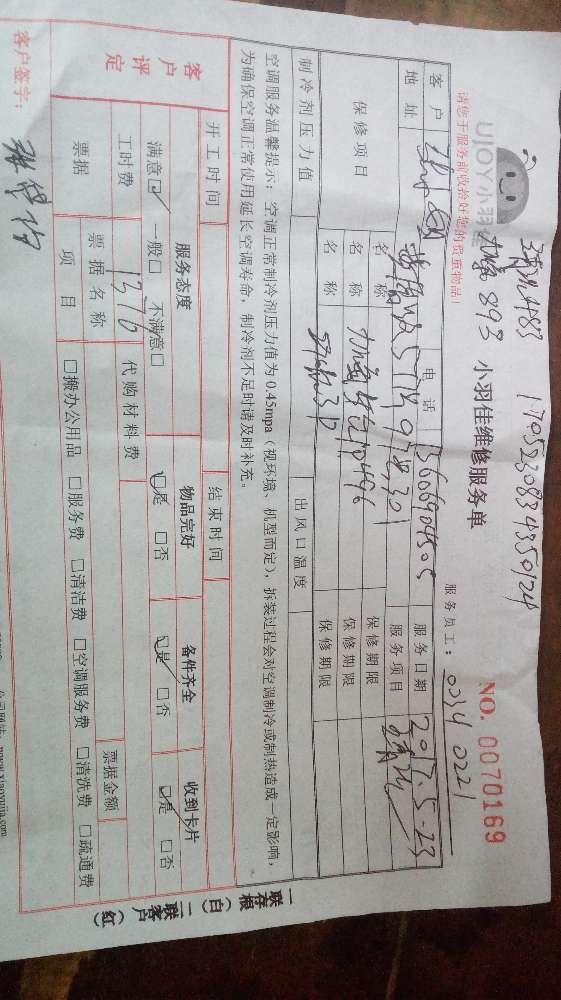 清洗483 17052308343350124
加氟893 小羽佳维修服务单
UJOY小羽佳
请您于服务前收拾好您的贵重物品!
NO. 0070169
服务员工: 0034 0221
客户 电话 13606904505 服务日期 2017.5.23
地址 服务项目 清洗
保修项目 名称 保修期限
名称 加氟 保修期限
名称 保修期限
制冷剂压力值 出风口温度
空调服务温馨提示:空调正常制冷剂压力值为0.45mpa(视环境、机型而定),拆装过程会对空调制冷或制热造成一定影响,
为确保空调正常使用延长空调寿命,制冷剂不足时请及时补充。
开工时间 结束时间
客户评定 服务态度 物品完好 备件齐全 收到卡片
满意☑ 一般□ 不满意□ ☑是 □否 ☑是 □否 ☑是 □否
工时费 1376 代购材料费
票据 票据名称 票据金额
项目 □搬办公用品 □服务费 □清洁费 □空调服务费 □清洗费 □疏通费
客户签字:
一联存根(白) 二联客户(红)
公司网站:www.xiaoyujia.com